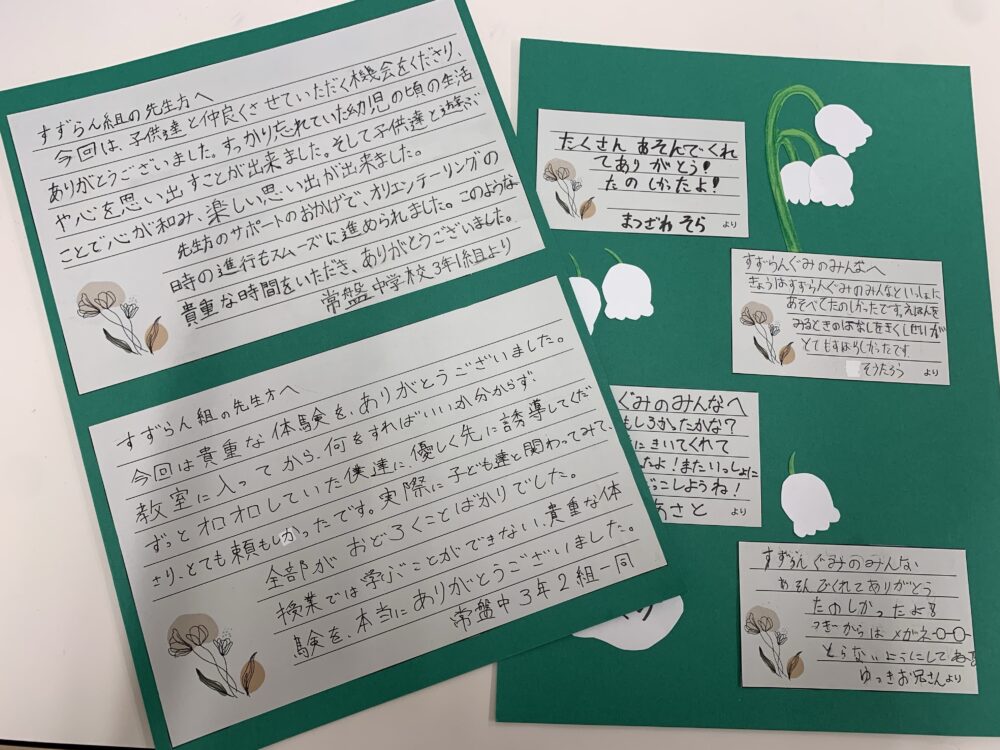 すずらん組の先生方へ
今回は、子供達と仲良くさせていただく機会をくださり、
ありがとうございました。すっかり忘れていた幼児の頃の生活
や心を思い出すことが出来ました。そして子供達と遊ぶ
ことで心が和み、楽しい思い出が出来ました。
先生方のサポートのおかげで、オリエンテーリングの
時の進行もスムーズに進められました。このような
貴重な時間をいただき、ありがとうございました。
常盤中学校3年1組より
すずらん組の先生方へ
今回は貴重な体験を、ありがとうございました。
教室に入ってから、何をすればいいか分からず、
ずっとオロオロしていた僕達に、優しく先に誘導してくだ
さり、とても頼もしかったです。実際に子ども達と関わってみて、
全部がおどろくことばかりでした。
授業では学ぶことができない、貴重な体
験を、本当にありがとうございました。
常盤中3年2組一同
たくさん あそんでくれ
てありがとう!
たのしかったよ!
まつざわ そら より
すずらんぐみのみんなへ
きょうはすずらんぐみのみんなといっしょに
あそべてたのしかったです。えほんを
みるときのはなしをきくしせいが
とてもすばらしかったです
そうたろう より
ぐみのみんなへ
もしろかったかな?
にきいてくれて
たよ!またいっしょに
ごっこしようね!
あさと より
すずらんぐみのみんな
あそんでくれてありがとう
たのしかったよ!!
つぎからはメガネ
とらないようにしてね
ゆっきお兄さんより